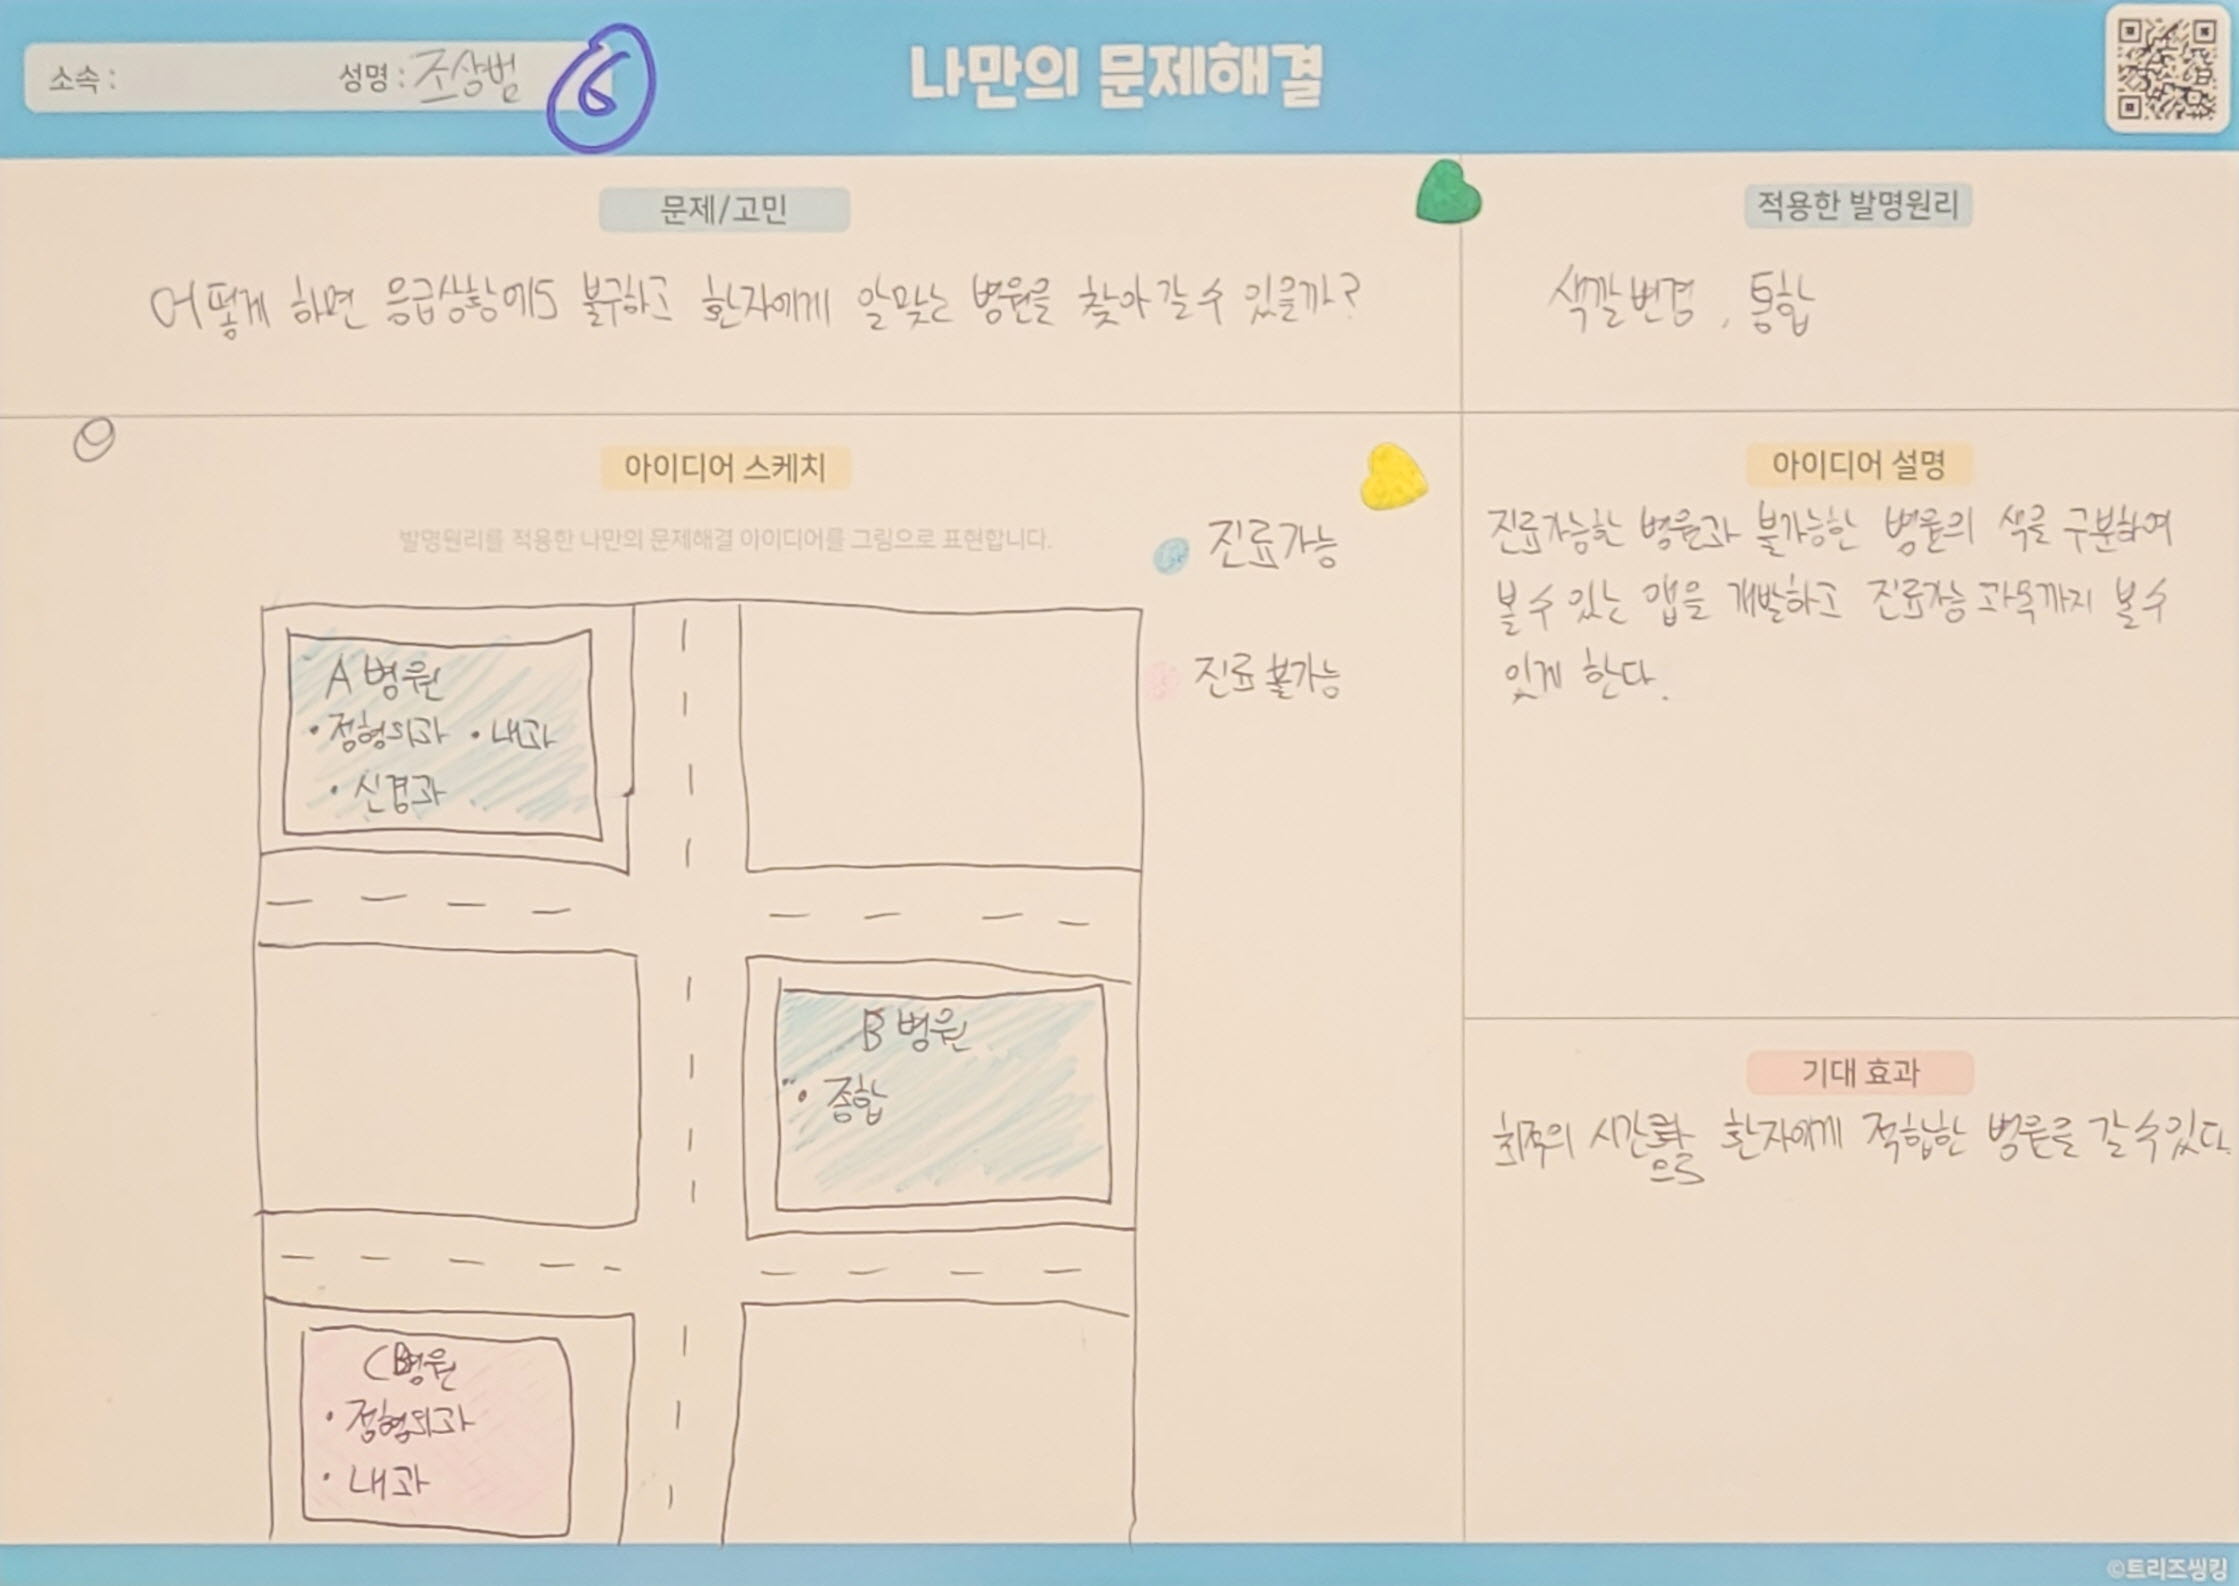 소속 :
성명 : 조상범
6
나만의 문제해결
문제/고민
어떻게 하면 응급상황에도 불구하고 환자에게 알맞는 병원을 찾아갈 수 있을까?
적용한 발명원리
색깔변경, 통합
아이디어 스케치
발명원리를 적용한 나만의 문제해결 아이디어를 그림으로 표현합니다.
진료가능
진료 불가능
A 병원
• 정형외과 • 내과
• 신경과
B 병원
• 종합
C 병원
• 정형외과
• 내과
아이디어 설명
진료가능한 병원과 불가능한 병원의 색을 구분하여
볼 수 있는 맵을 개발하고 진료가능 과목까지 볼 수
있게 한다.
기대 효과
시간으로 환자에게 적합한 병원을 갈 수 있다.
©트리즈씽킹